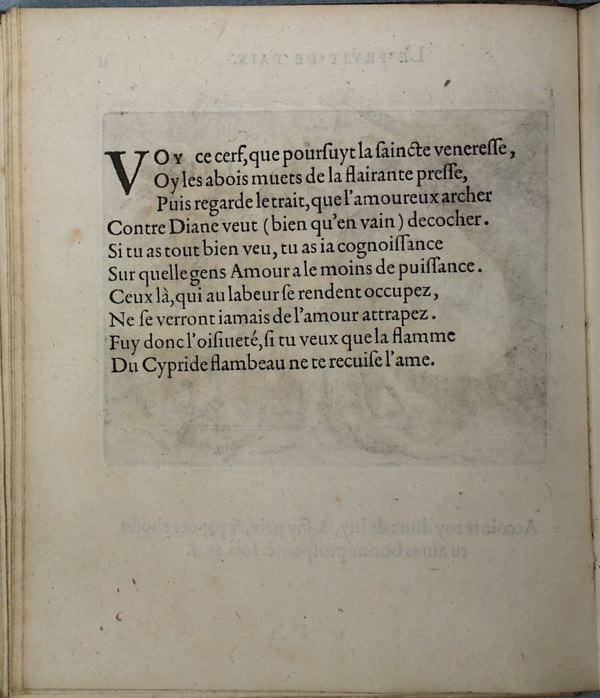 VOY ce cerf, que pourſuyt la ſaincte venereſſe,
Oy les abois muets de la flairante preſſe,
Puis regarde le trait, que l'amoureux archer
Contre Diane veut (bien qu'en vain) decocher.
Si tu as tout bien veu, tu as ia cognoiſſance
Sur quelle gens Amour a le moins de puiſſance.
Ceux là, qui au labeur ſe rendent occupez,
Ne ſe verront iamais de l'amour attrapez.
Fuy donc l'oiſiueté, ſi tu veux que la flamme
Du Cypride flambeau ne te recuiſe l'ame.